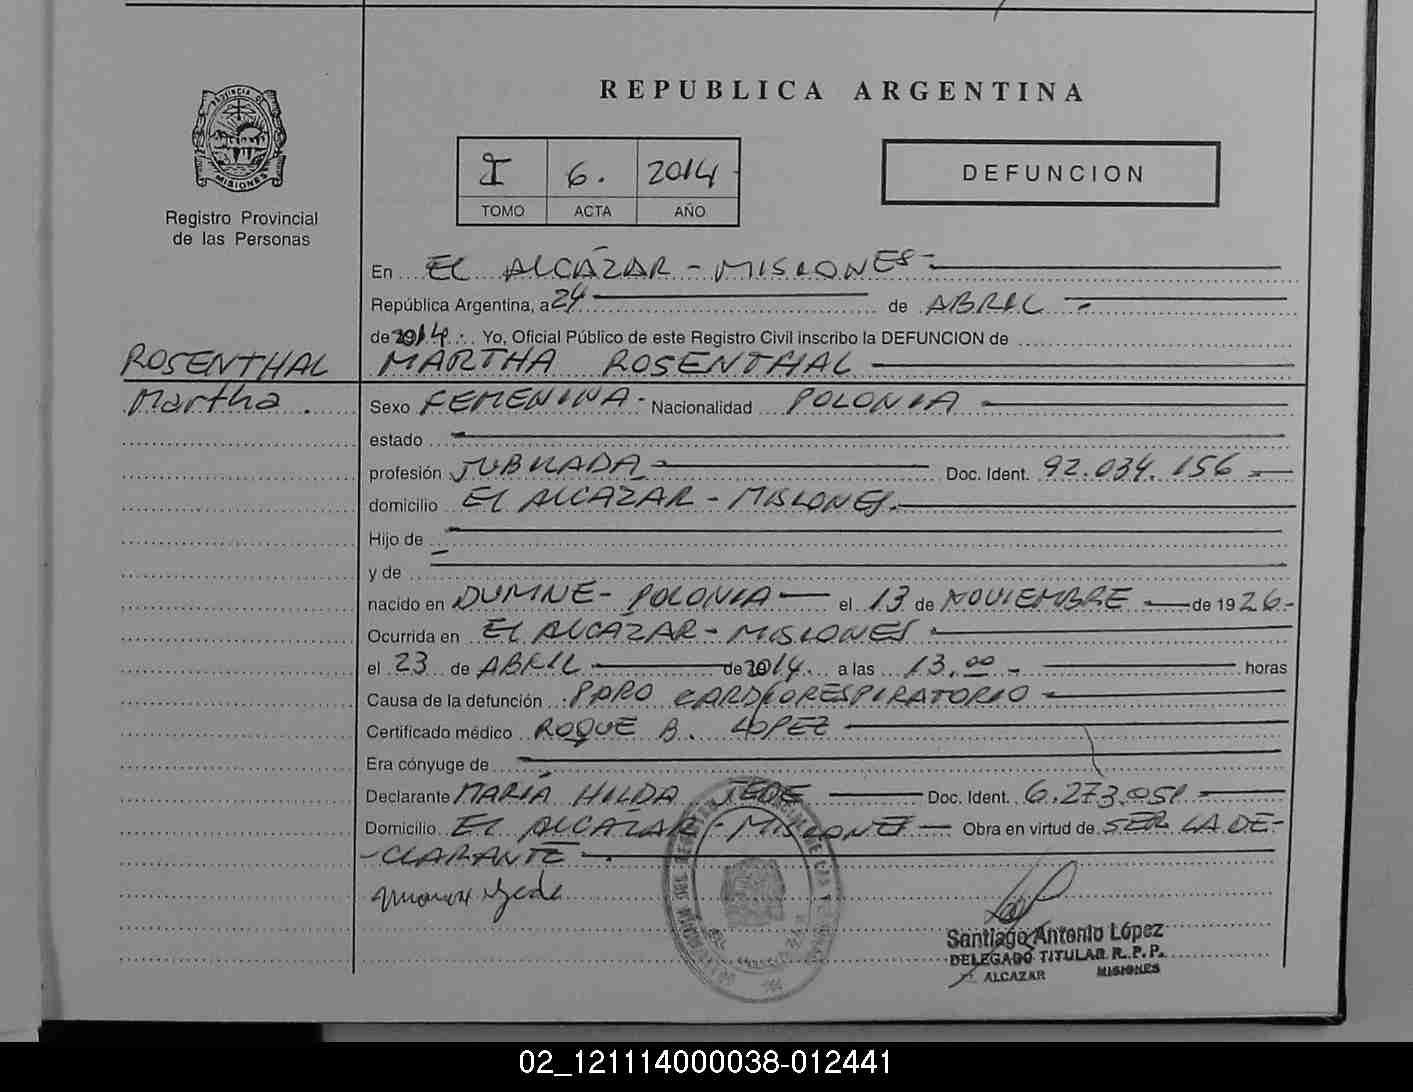 REPUBLICA ARGENTINA
PROVINCIA D
MISIONES
Registro Provincial
de las Personas
I 6. 2014
TOMO ACTA AÑO
DEFUNCION
En EL ALCÁZAR - MISIONES -
República Argentina, a 24 de ABRIL -
de 2014. Yo, Oficial Público de este Registro Civil inscribo la DEFUNCION de
ROSENTHAL MARTHA ROSENTHAL
Martha. Sexo FEMENINA - Nacionalidad POLONIA
estado
profesión JUBILADA Doc. Ident. 92.034.156
domicilio EL ALCAZAR - MISIONES.
Hijo de
y de
nacido en DUMNE - POLONIA el 13 de NOVIEMBRE de 1926-
Ocurrida en EL ALCAZAR - MISIONES
el 23 de ABRIL de 2014. a las 13,00 - horas
Causa de la defunción PARO CARDIORESPIRATORIO
Certificado médico ROQUE B. LOPEZ
Era cónyuge de
Declarante MARÍA HILDA JEDE Doc. Ident. 6.273.051
Domicilio EL ALCAZAR - MISIONES Obra en virtud de SER LA DE-
-CLARANTE.
Santiago Antonio López
DELEGADO TITULAR R. P. P.
ALCAZAR MISIONES
02_121114000038-012441